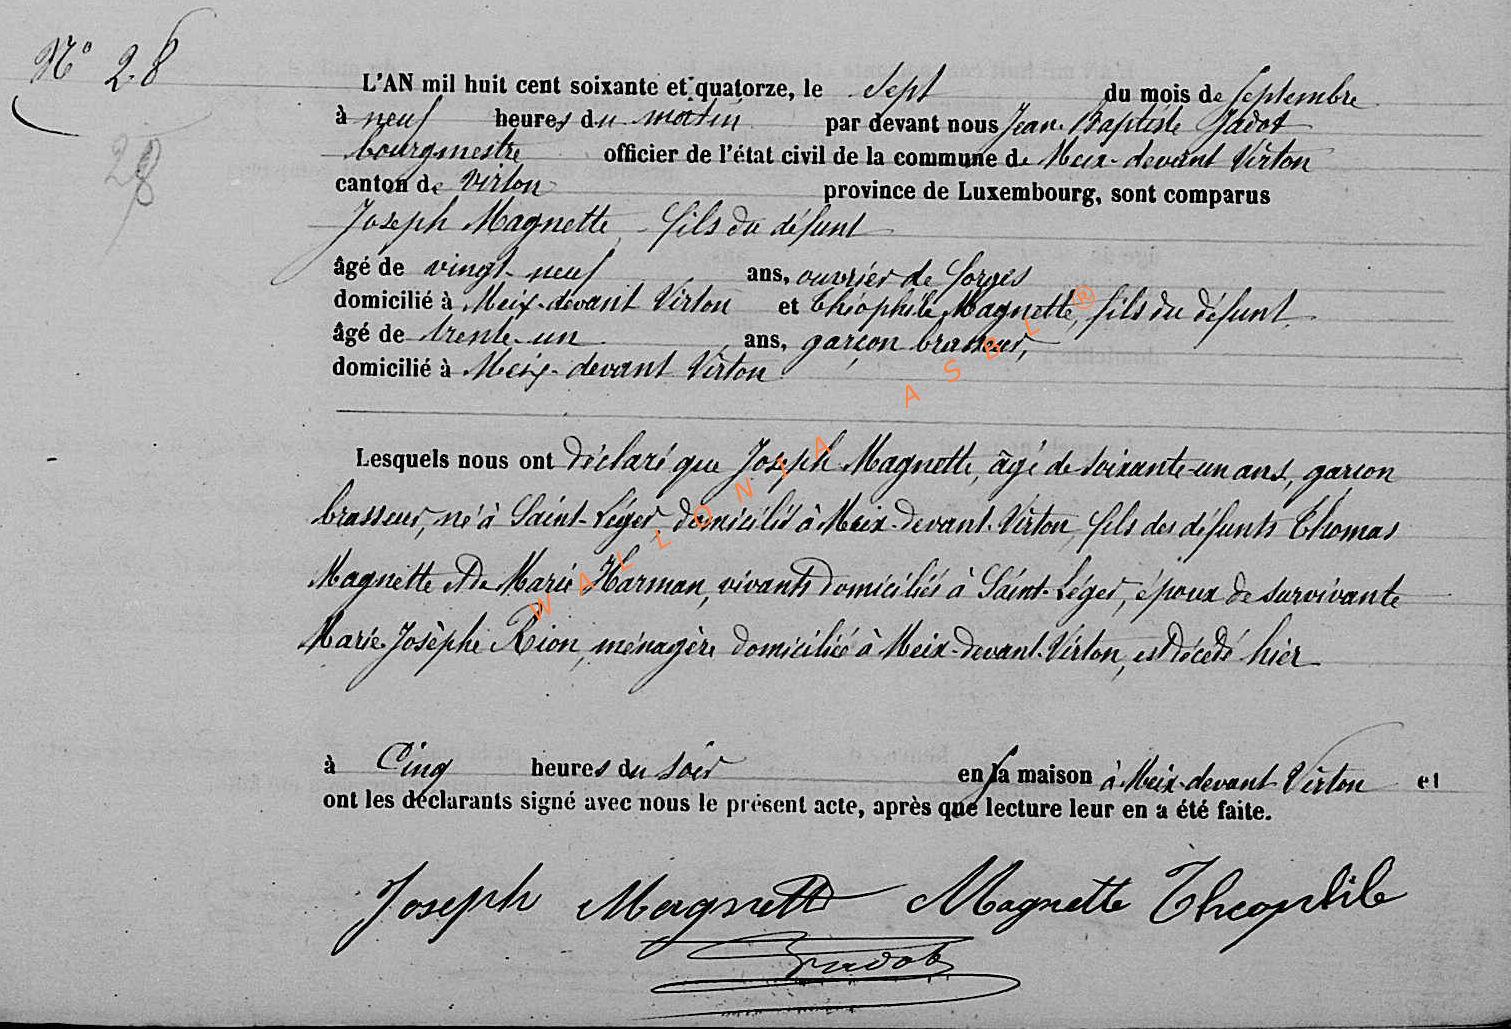 N° 28
28
L'AN mil huit cent soixante et quatorze, le sept du mois de Septembre
à neuf heures du matin par devant nous Jean Baptiste Jadot
bourgmestre officier de l'état civil de la commune de Meix-devant Virton
canton de Virton province de Luxembourg, sont comparus
Joseph Magnette, fils du défunt
âgé de vingt-neuf ans, ouvrier de forges
domicilié à Meix-devant Virton et Théophile Magnette, fils du défunt
âgé de trente-un ans, garçon brasseur,
domicilié à Meix-devant Virton
Lesquels nous ont déclaré que Joseph Magnette, âgé de soixante-un ans, garçon
brasseur, né à Saint-Léger, domicilié à Meix-devant-Virton, fils des défunts Thomas
Magnette et de Marie Harman, vivants domiciliés à Saint-Léger, époux de survivante
Marie-Josèphe Rion, ménagère domiciliée à Meix-devant-Virton, est décédé hier
à Cinq heures du soir en sa maison à Meix-devant-Virton et
ont les déclarants signé avec nous le présent acte, après que lecture leur en a été faite.
Joseph Magnette Magnette Théophile
Jadot
WALLONIA ASBL ®